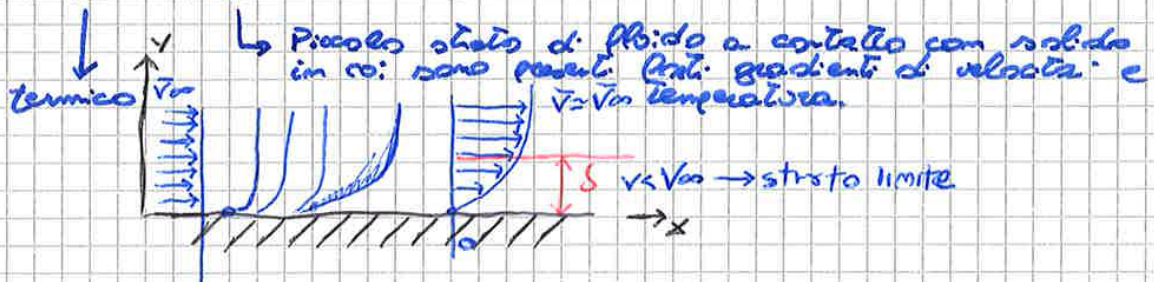 ↳ Piccolo strato di fluido a contatto con solido
in cui sono presenti forti gradienti di velocità e
temperatura.
termico
y
V∞
V≃V∞
δ
v<V∞ → strato limite
x
0